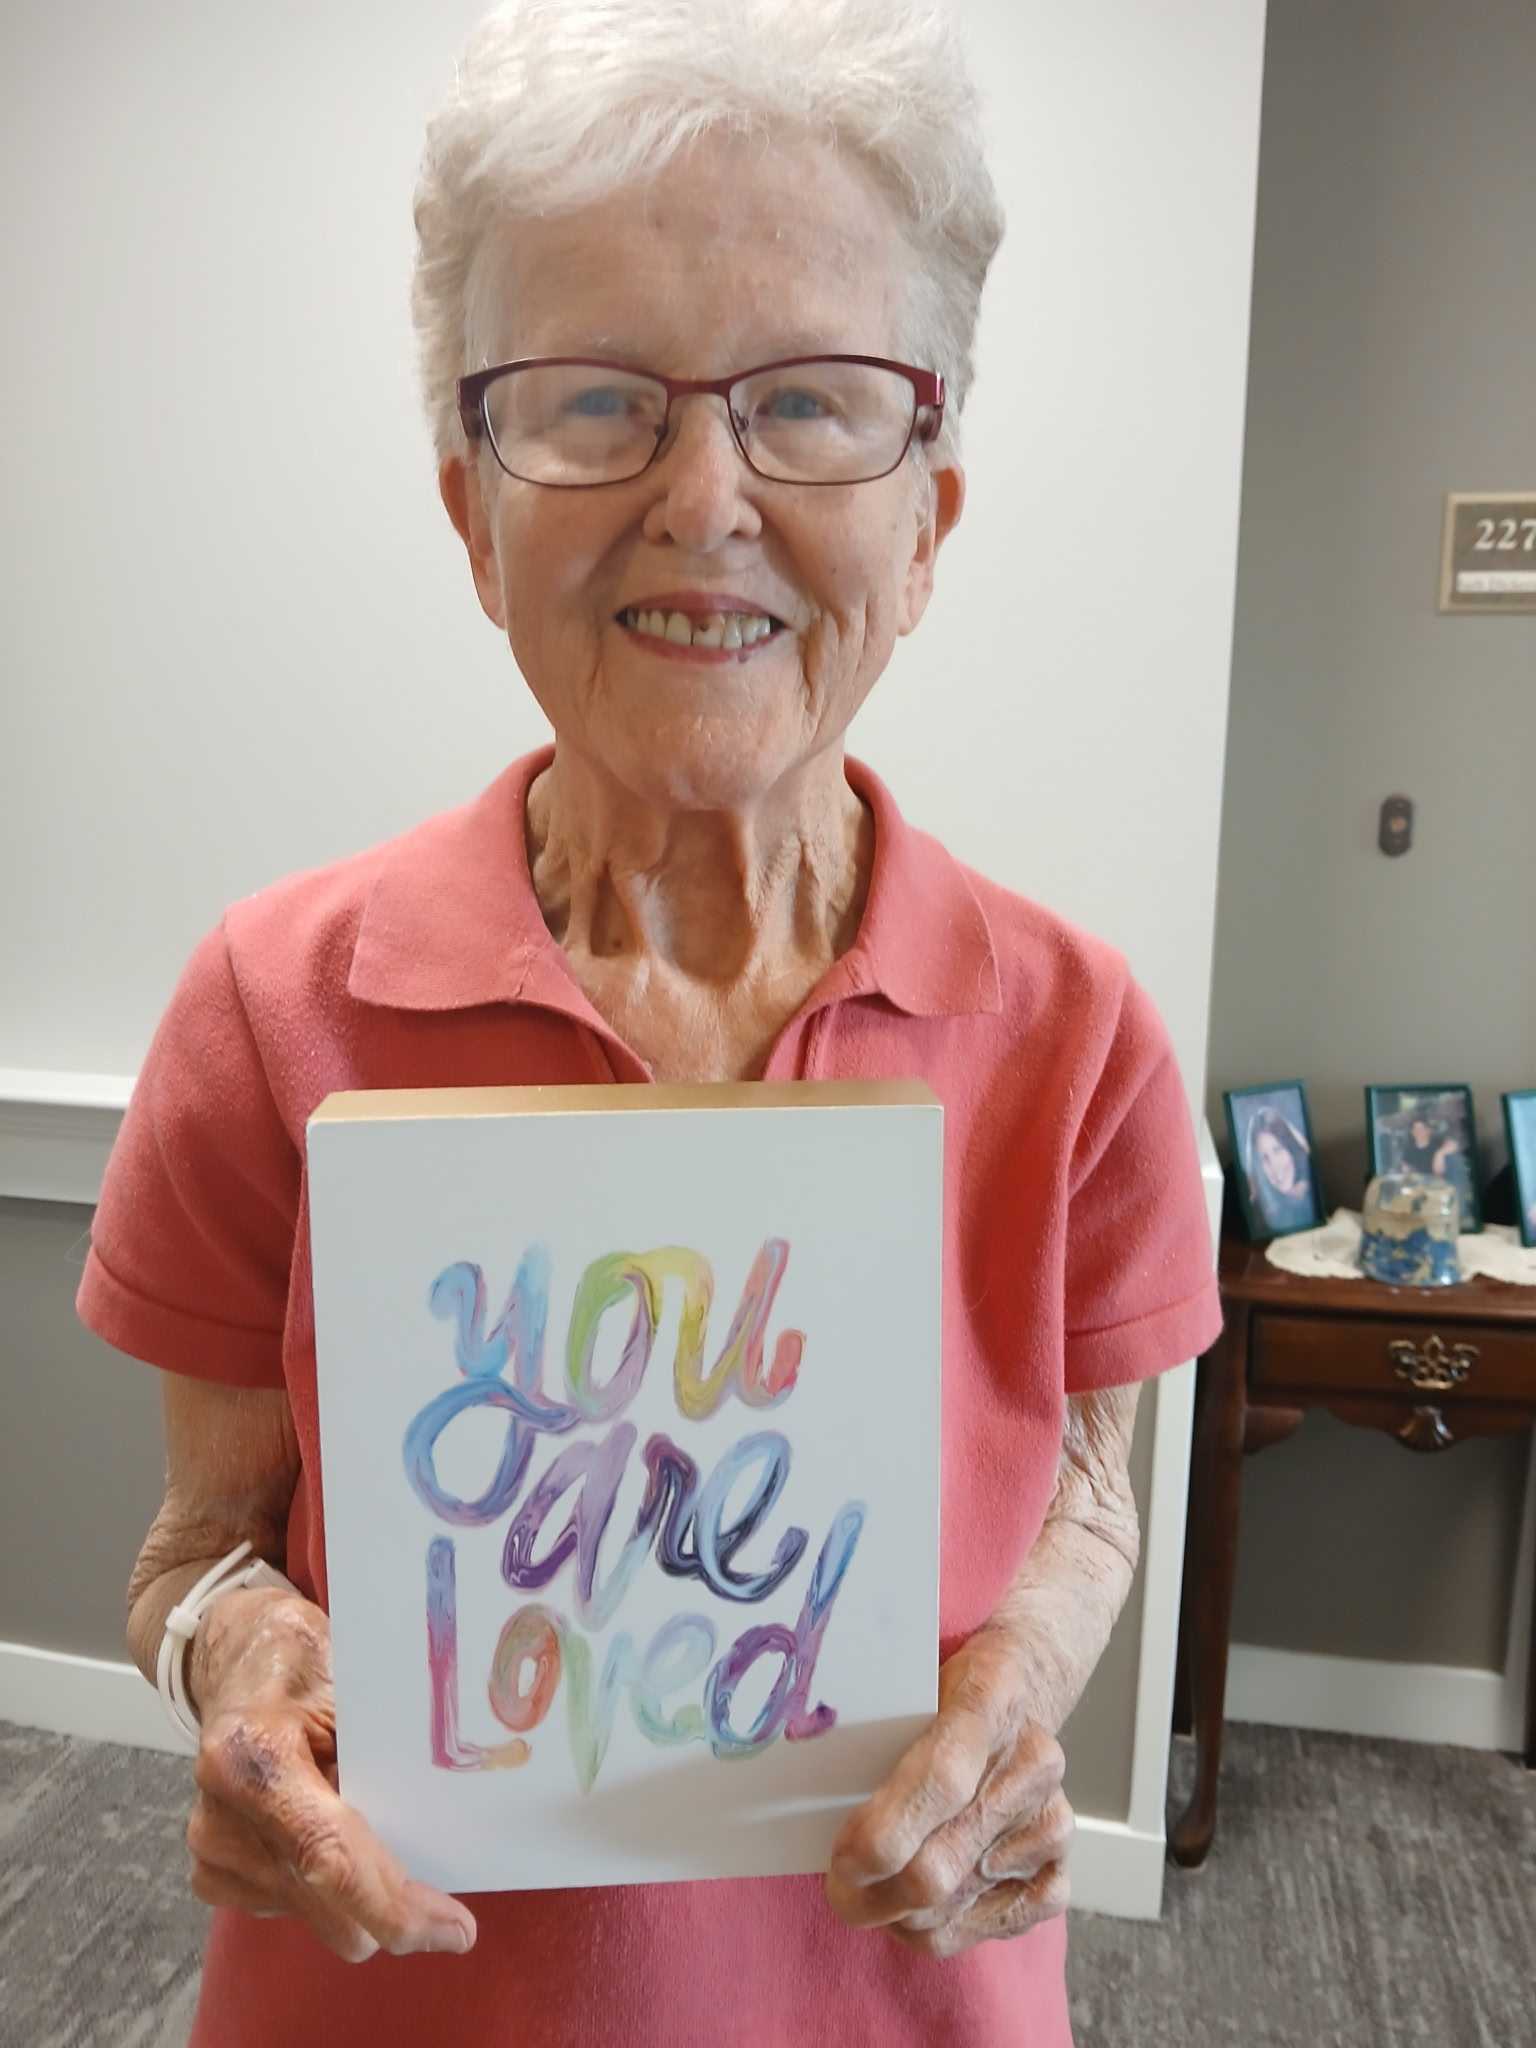 you
are
Loved
227